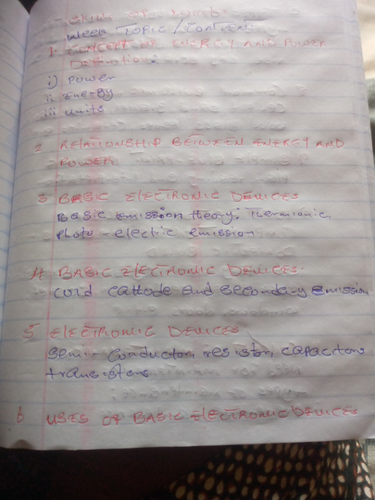 Week TOPIC / Content
1. CONCEPT OF ENERGY AND POWER
Definition:
i) Power
ii Energy
iii units
2 RELATIONSHIP BETWEEN ENERGY AND
POWER
3 BASIC ELECTRONIC DEVICES
Basic emission theory: Thermionic,
photo - electric emission
4 BASIC ELECTRONIC DEVICES
- cold cattode and secondary emission
5 ELECTRONIC DEVICES
Semi - Conductor, resistor, capacitors
transistors
6 USES OF BASIC ELECTRONIC DEVICES